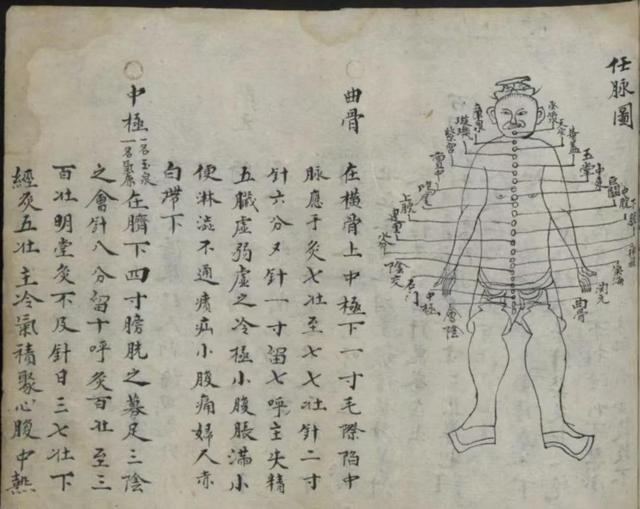 任脉圖
承漿
廉泉
天突
璇璣
華蓋
紫宮
玉堂
膻中
中庭
鳩尾
巨闕
上脘
中脘
建里
水分
陰交
氣海
石門
関元
中極
曲骨
會陰
曲骨 在橫骨上中極下一寸毛際陷中
脉應手灸七壯至七七壯針二寸
針六分又針一寸留七呼主失精
五臟虛弱虛乏冷極小腹脹滿小
便淋澁不通㿉疝小腹痛婦人赤
白帶下
中極 一名玉泉 一名氣原 在臍下四寸膀胱之募足三陰
之會針八分留十呼灸百壯至三
百壯明堂灸不及針日三七壯下
經灸五壯主冷氣積聚心腹中熱